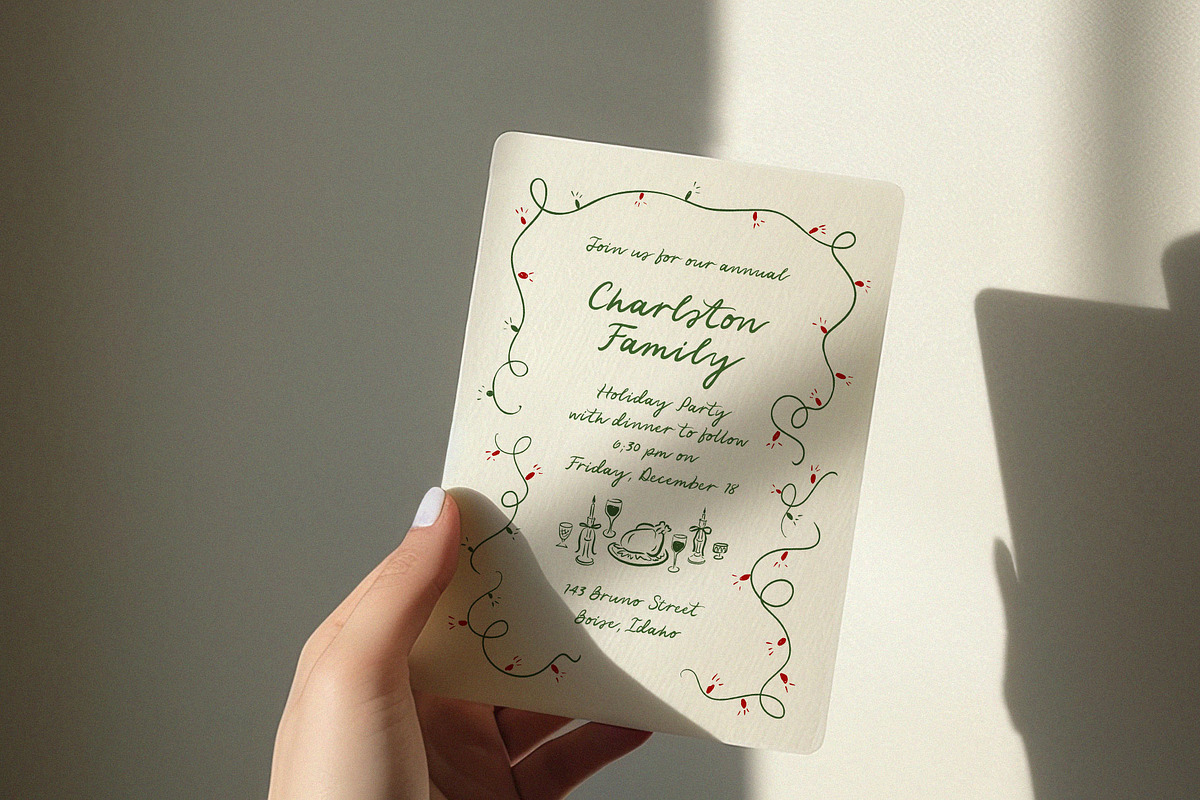 Join us for our annual
Charlston
Family
Holiday Party
with dinner to follow
6:30 pm on
Friday, December 18
143 Bruno Street
Boise, Idaho